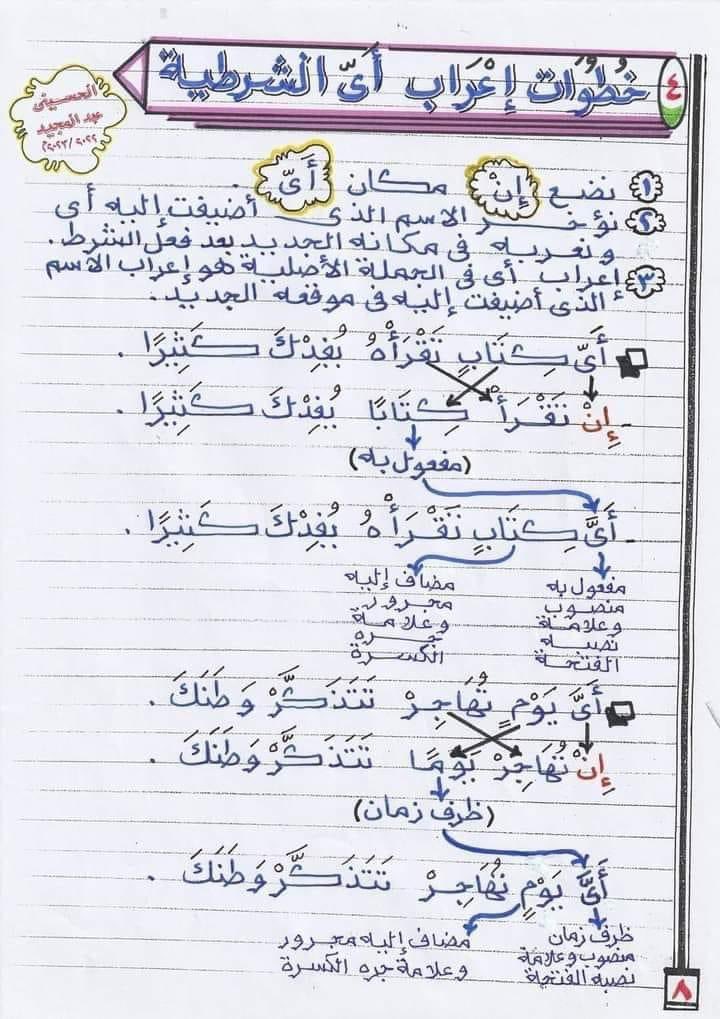 ٤
خُطُوَات إِعْرَاب أَىّ الشرطية
الحسينى
عبد المجيد
٢٠٢٣/٢٠٢٢م
١ نضع إِنْ مكان أَىّ .
٢ نؤخر الاسم الذى أضيفت إليه أى
ونعربه فى مكانه الجديد بعد فعل الشرط .
٣ إعراب أى فى الجملة الأصلية هو إعراب الاسم
الذى أضيفت إليه فى موقعه الجديد .
أَىّ كِتَابٍ تَقْرَأْهُ يُفِدْكَ كَثِيرًا .
- إِنْ تَقْرَأْ كِتَابًا يُفِدْكَ كَثِيرًا .
(مفعول به)
- أَىَّ كِتَابٍ تَقْرَأْهُ يُفِدْكَ كَثِيرًا .
مفعول به
منصوب
وعلامة
نصبه
الفتحة
مضاف إليه
مجرور
وعلامة
جره
الكسرة
أَىَّ يَوْمٍ تُهَاجِرْ تَتَذَكَّرْ وَطَنَكَ .
إِنْ تُهَاجِرْ يَوْمًا تَتَذَكَّرْ وَطَنَكَ .
(ظرف زمان)
أَىَّ يَوْمٍ تُهَاجِرْ تَتَذَكَّرْ وَطَنَكَ .
ظرف زمان
منصوب وعلامة
نصبه الفتحة
مضاف إليه مجرور
وعلامة جره الكسرة
٨